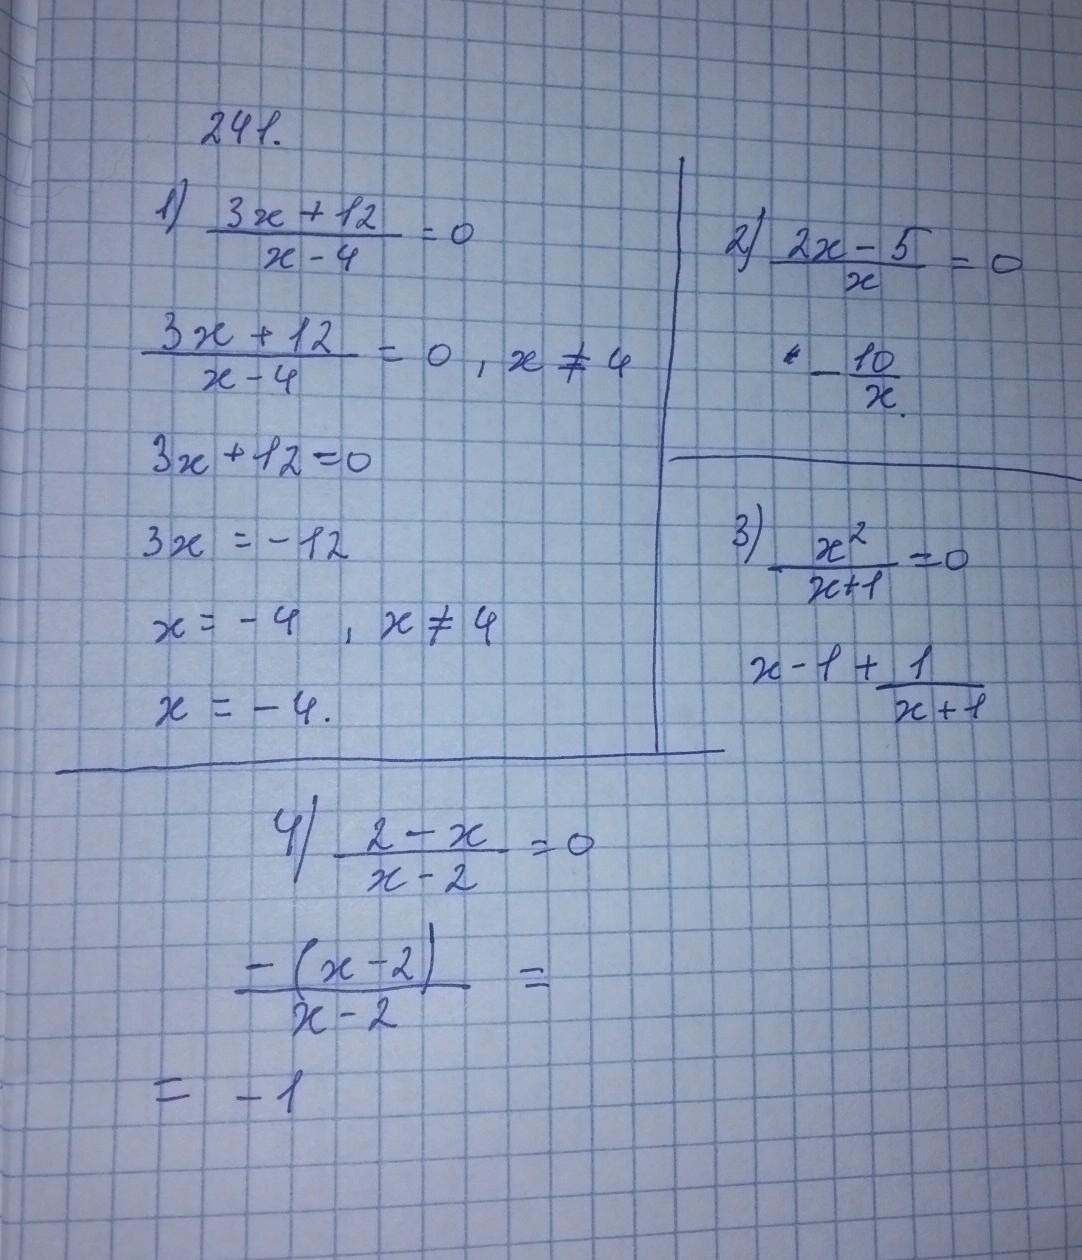 241.
1) (3x + 12)/(x - 4) = 0
(3x + 12)/(x - 4) = 0 , x ≠ 4
3x + 12 = 0
3x = -12
x = -4 , x ≠ 4
x = -4.
2) (2x - 5)/x = 0
- 10/x.
3) x²/(x+1) = 0
x - 1 + 1/(x + 1)
4) (2 - x)/(x - 2) = 0
-(x - 2)/(x - 2) =
= -1